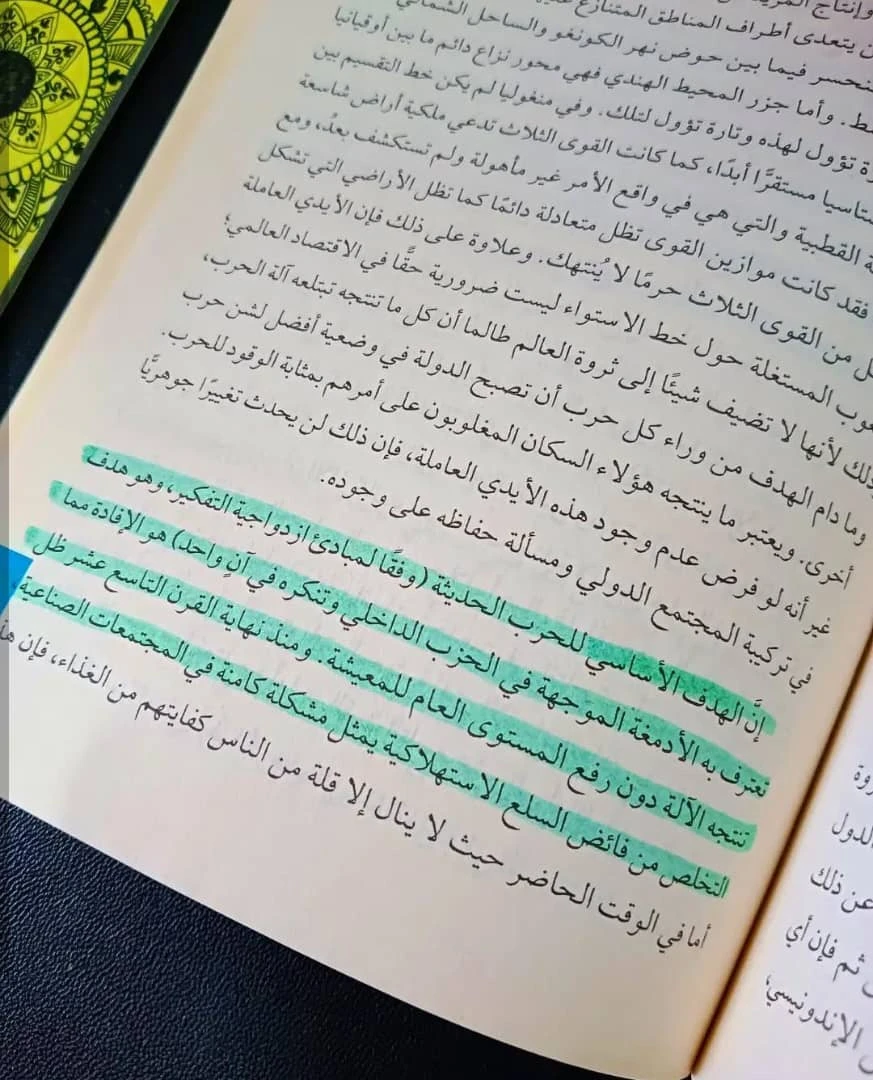 وإنتاج المزيد
ن يتعدى أطراف المناطق المتنازع عليها
نحسر فيما بين حوض نهر الكونغو والساحل الشمالي
ط. وأما جزر المحيط الهندي فهي محور نزاع دائم ما بين أوقيانيا
ة تؤول لهذه وتارة تؤول لتلك. وفي منغوليا لم يكن خط التقسيم بين
ستاسيا مستقرًا أبدًا، كما كانت القوى الثلاث تدعي ملكية أراض شاسعة
ة القطبية والتي هي في واقع الأمر غير مأهولة ولم تستكشف بعدُ، ومع
فقد كانت موازين القوى تظل متعادلة دائمًا كما تظل الأراضي التي تشكل
ل من القوى الثلاث حرمًا لا يُنتهك. وعلاوة على ذلك فإن الأيدي العاملة
وب المستغلة حول خط الاستواء ليست ضرورية حقًّا في الاقتصاد العالمي؛
ذلك لأنها لا تضيف شيئًا إلى ثروة العالم طالما أن كل ما تنتجه تبتلعه آلة الحرب،
وما دام الهدف من وراء كل حرب أن تصبح الدولة في وضعية أفضل لشن حرب
أخرى. ويعتبر ما ينتجه هؤلاء السكان المغلوبون على أمرهم بمثابة الوقود للحرب.
غير أنه لو فرض عدم وجود هذه الأيدي العاملة، فإن ذلك لن يحدث تغييرًا جوهريًّا
في تركيبة المجتمع الدولي ومسألة حفاظه على وجوده.
إنَّ الهدف الأساسي للحرب الحديثة (وفقًا لمبادئ ازدواجية التفكير، وهو هدف
تعترف به الأدمغة الموجهة في الحزب الداخلي وتنكره في آنٍ واحد) هو الإفادة مما
تنتجه الآلة دون رفع المستوى العام للمعيشة. ومنذ نهاية القرن التاسع عشر ظل
التخلص من فائض السلع الاستهلاكية يمثل مشكلة كامنة في المجتمعات الصناعية،
أما في الوقت الحاضر حيث لا ينال إلا قلة من الناس كفايتهم من الغذاء، فإن هذ
روة
الدول
عن ذلك
ثم فإن أي
الإندونيسي،